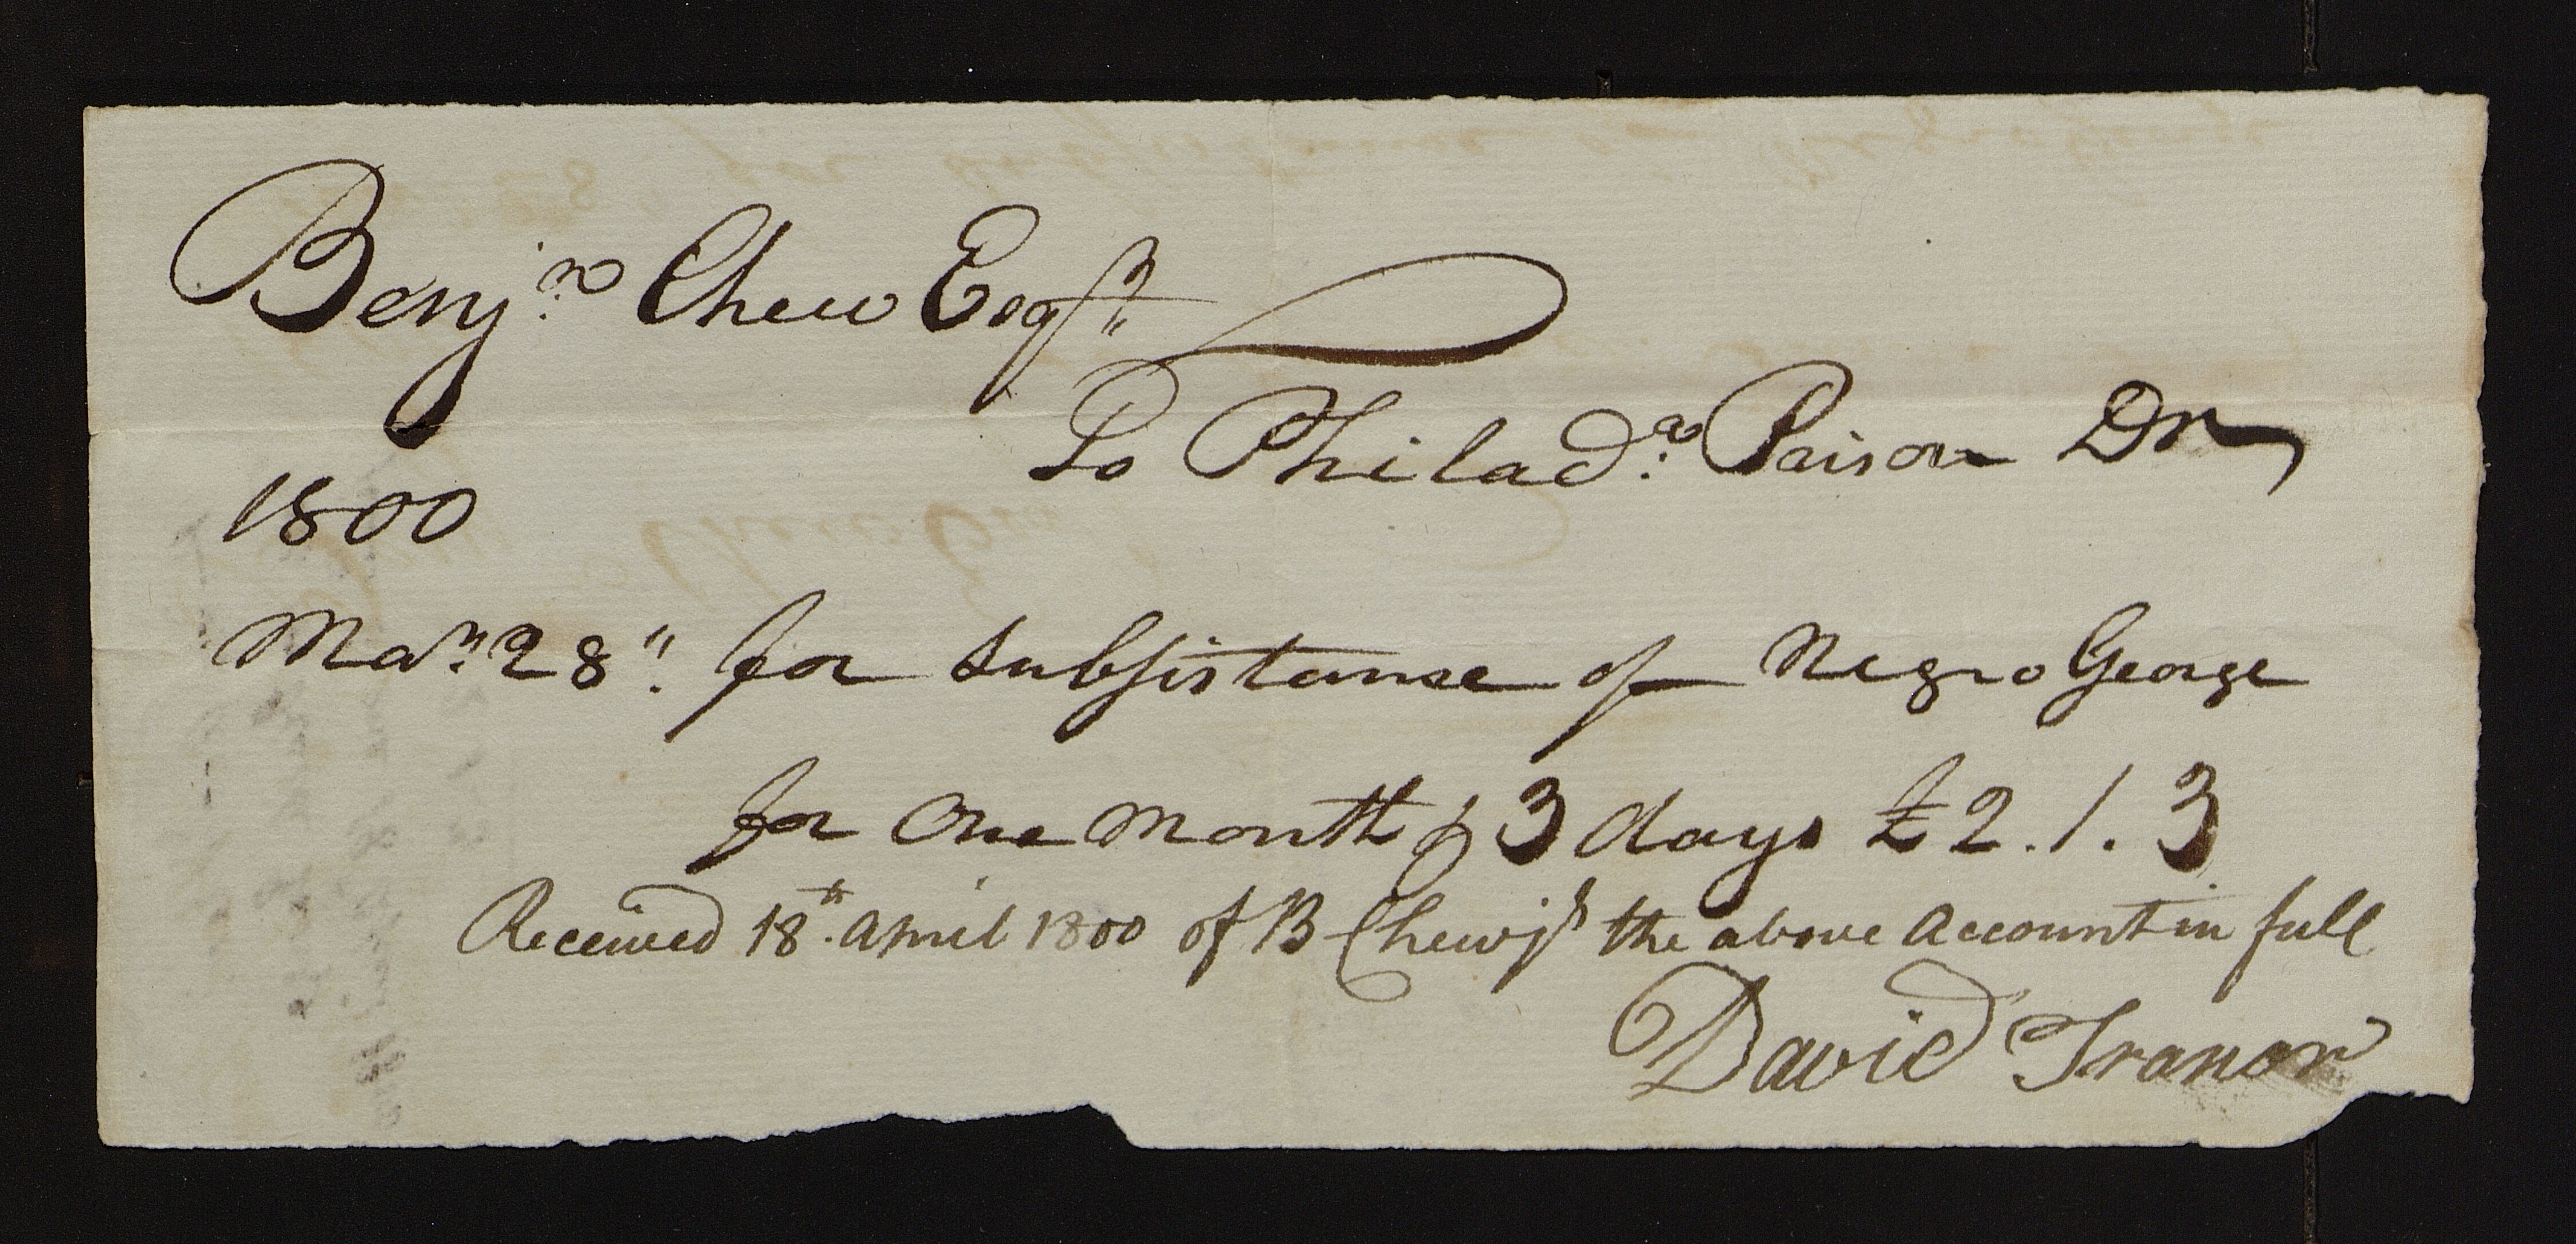 Benjn. Chew Esqr.
To Philada. Prison Dr
1800
Mar. 28". for Subsistance of Negro George
for One Month & 3 days £2.1.3
Received 18th. April 1800 of B Chew jr the above Account in full
David Tranor